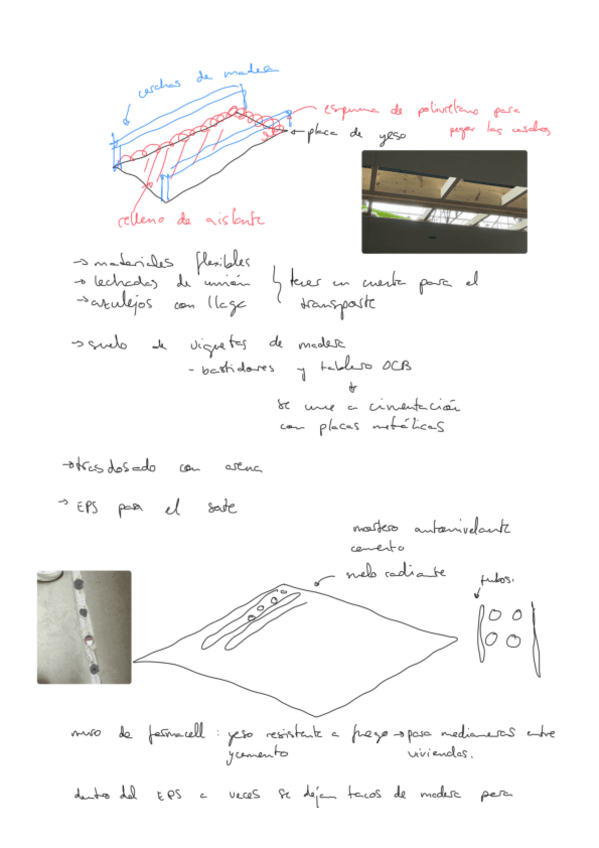 cerchas de madera
espuma de poliuretano para
pegar las cerchas
placa de yeso
relleno de aislante
→ materiales flexibles
→ lechadas de unión
→ azulejos con llaga
tener en cuenta para el
transporte
→ suelo de viguetas de madera
- bastidores y tablero OCB
se une a cimentación
con placas metálicas
→ trasdosado con arena
→ EPS para el sate
mortero autonivelante
cemento
suelo radiante
tubos.
muro de fermacell : yeso resistente a fuego → para medianeras entre
y cemento viviendas.
dentro del EPS a veces se dejan tacos de madera para